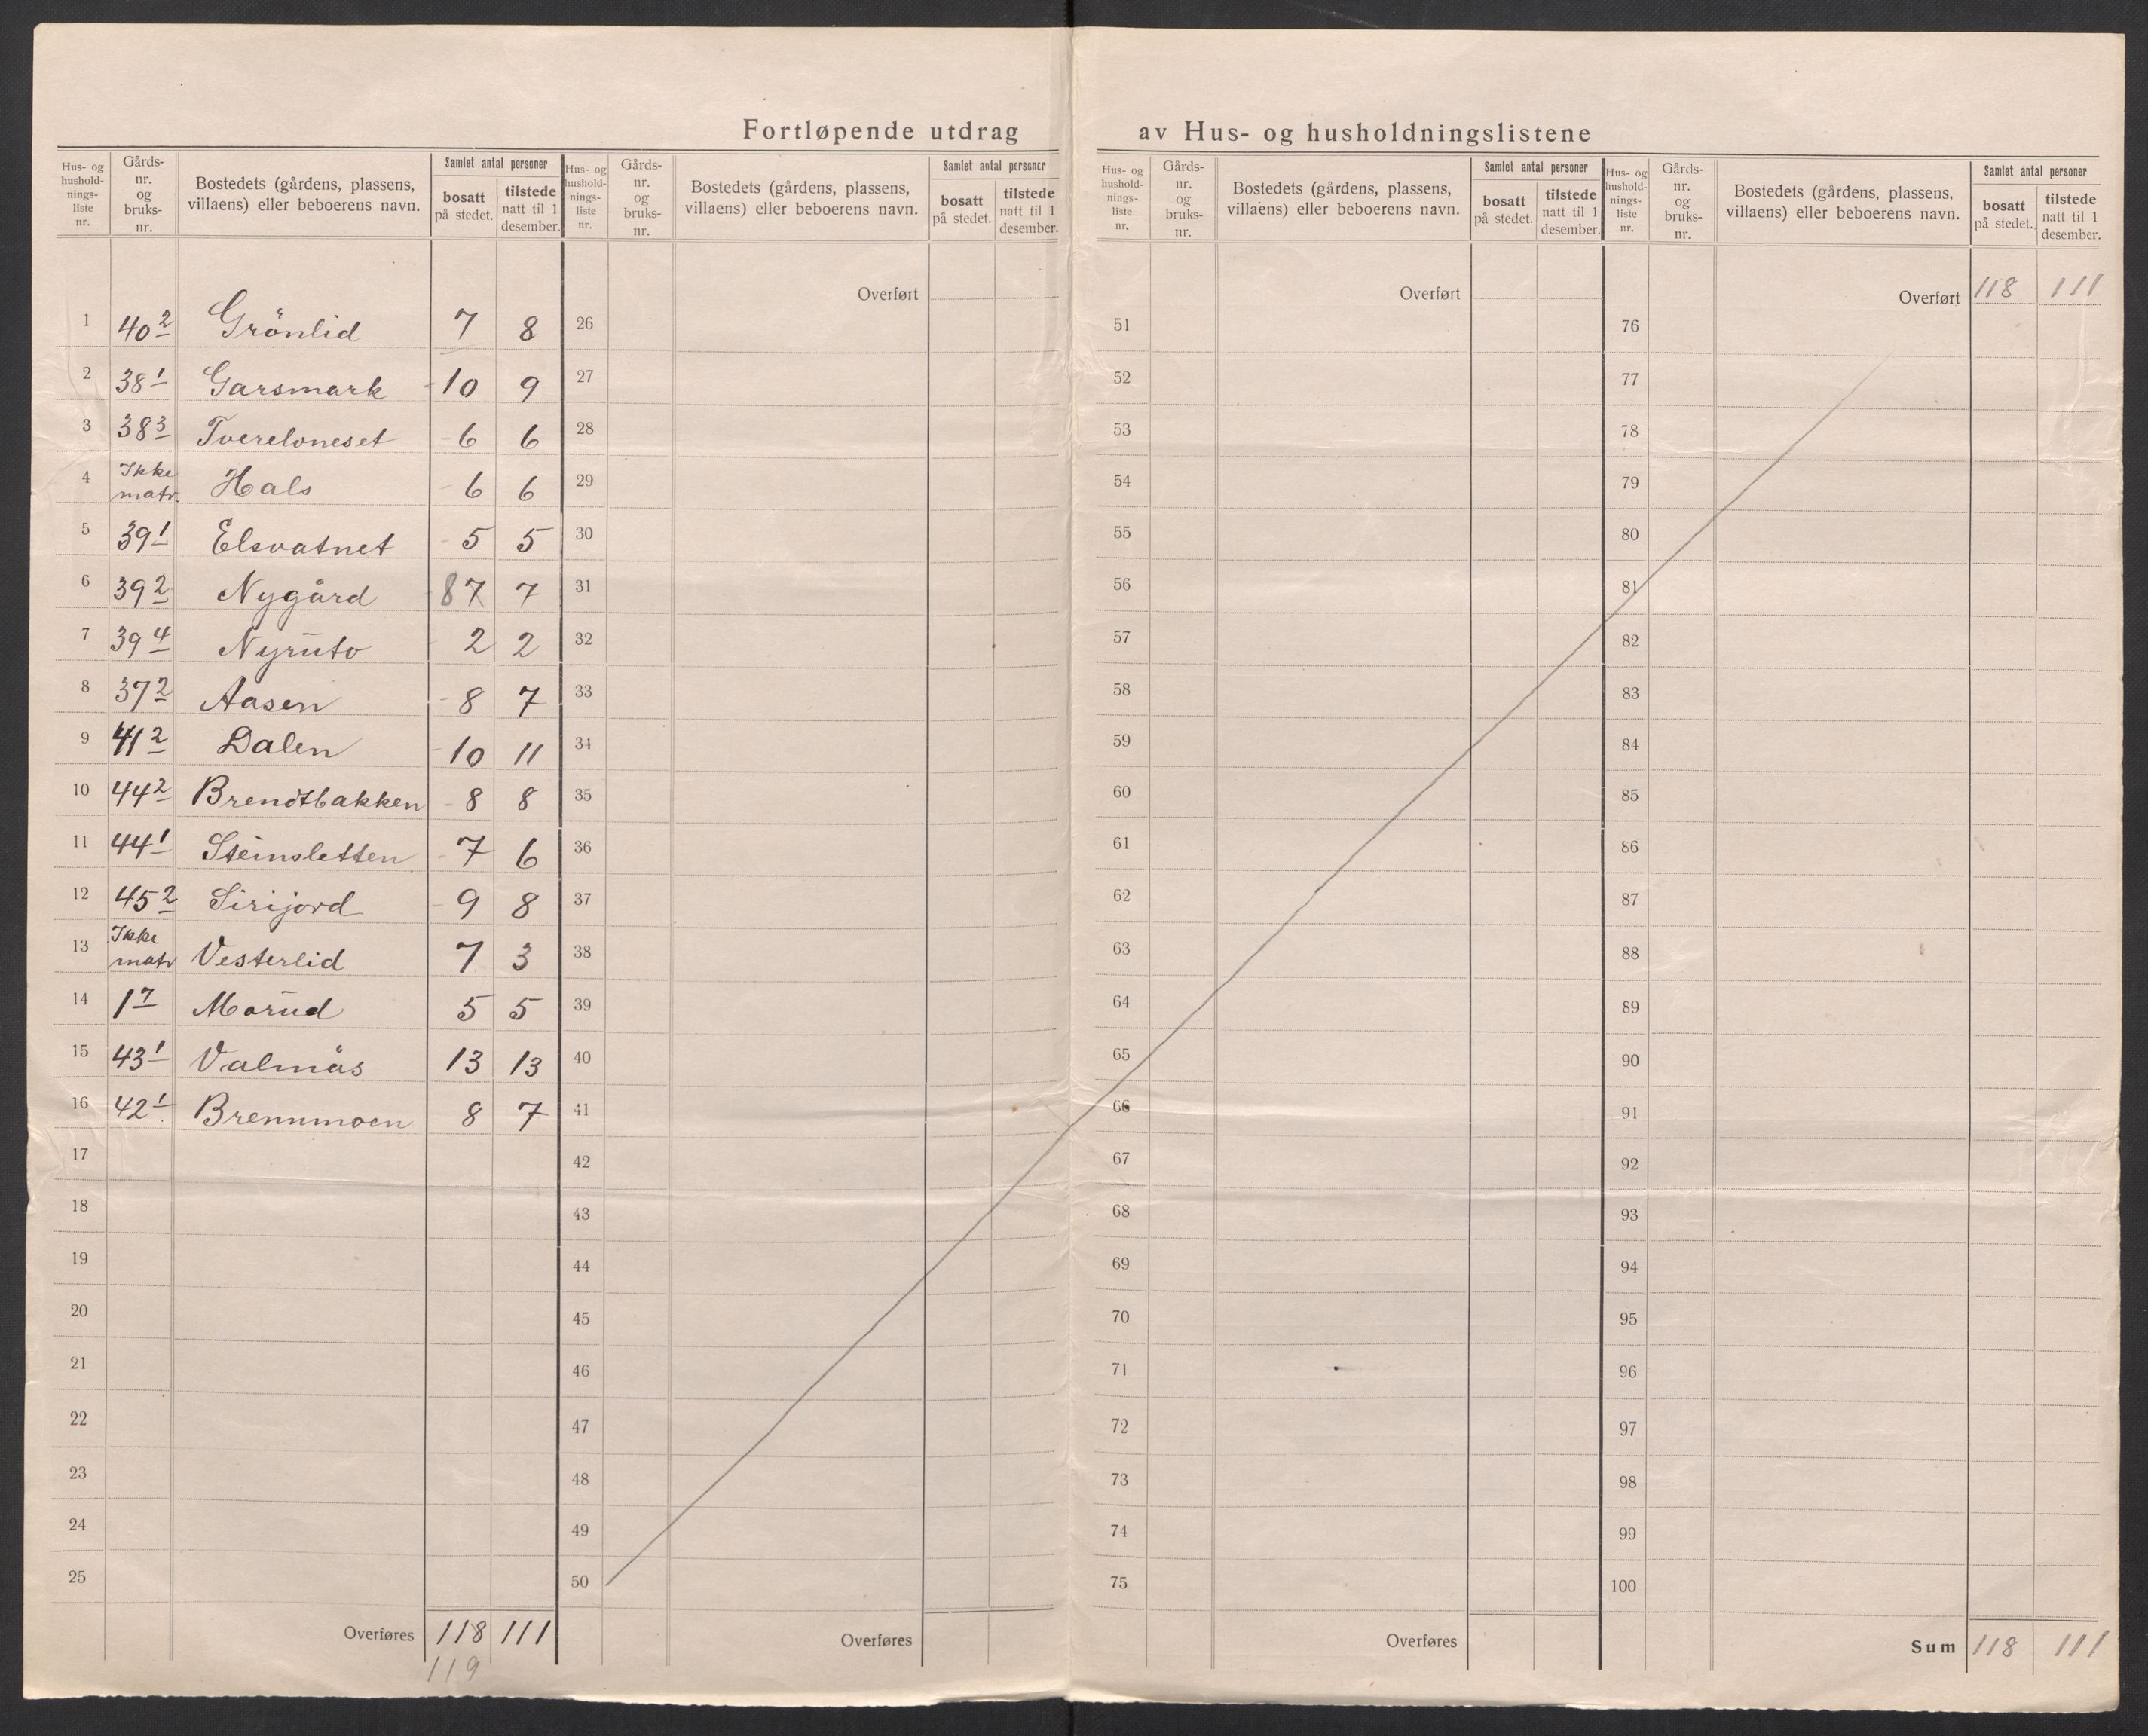 Fortløpende utdrag av Hus- og husholdningslistene
Hus- og husholdnings-liste nr. | Gårds-nr. og bruks-nr. | Bostedets (gårdens, plassens, villaens) eller beboerens navn. | Samlet antal personer | bosatt på stedet. | tilstede natt til 1 desember.
Hus- og husholdnings-liste nr. | Gårds-nr. og bruks-nr. | Bostedets (gårdens, plassens, villaens) eller beboerens navn. | Samlet antal personer | bosatt på stedet. | tilstede natt til 1 desember.
Hus- og husholdnings-liste nr. | Gårds-nr. og bruks-nr. | Bostedets (gårdens, plassens, villaens) eller beboerens navn. | Samlet antal personer | bosatt på stedet. | tilstede natt til 1 desember.
Hus- og husholdnings-liste nr. | Gårds-nr. og bruks-nr. | Bostedets (gårdens, plassens, villaens) eller beboerens navn. | Samlet antal personer | bosatt på stedet. | tilstede natt til 1 desember.
Overført Overført Overført 118 111
1 40 2 Grönlid 7 8 26 51 76
2 38 1 Garsmark 10 9 27 52 77
3 38 3 Tverelvneset 6 6 28 53 78
4 Ikke matr. Hals 6 6 29 54 79
5 39 1 Elsvatnet 5 5 30 55 80
6 39 2 Nygård 8 7 7 31 56 81
7 39 4 Nyruto 2 2 32 57 82
8 37 2 Aasen 8 7 33 58 83
9 41 2 Dalen 10 11 34 59 84
10 44 2 Brendtbakken 8 8 35 60 85
11 44 1 Steinsletten 7 6 36 61 86
12 45 2 Sirijord 9 8 37 62 87
13 Ikke matr Vesterlid 7 3 38 63 88
14 1 7 Morud 5 5 39 64 89
15 43 1 Valmås 13 13 40 65 90
16 42 1 Brennmoen 8 7 41 66 91
17 42 67 92
18 43 68 93
19 44 69 94
20 45 70 95
21 46 71 96
22 47 72 97
23 48 73 98
24 49 74 99
25 50 75 100
Overføres 118 111 Overføres Overføres Sum 118 111
119